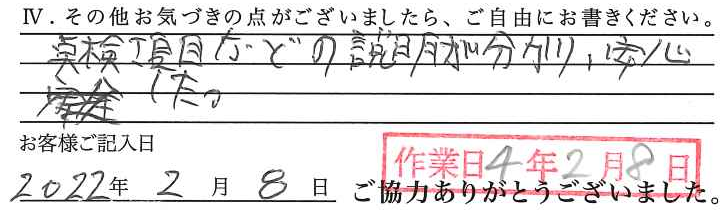 Ⅳ．その他お気づきの点がございましたら、ご自由にお書きください。
点検項目などの説明が分かり、安心
した。
お客様ご記入日
作業日4年2月8日
2022年 2月 8日 ご協力ありがとうございました。